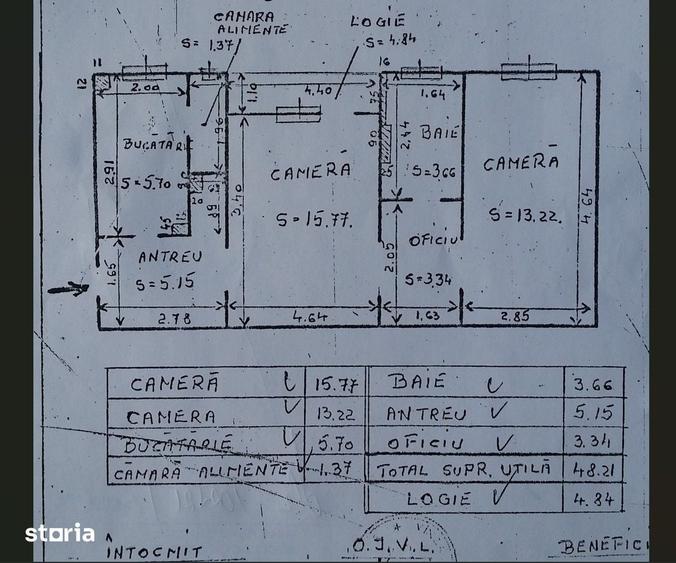 CĂMARA
ALIMENTE
S= 1.37
LOGIE
S= 4.84
11
12
16
2.00
1.10
4.40
75
1.64
BUCĂTĂRIE
S=5.70
2.91
1.96
CAMERĂ
S=15.77.
3.40
90
2.44
BAIE
S=3.66
CAMERĂ
S=13.22.
4.64
45
ANTREU
S=5.15
1.65
OFICIU
S=3.34
2.05
2.78
4.64
1.63
2.85
CAMERĂ 15.77 BAIE 3.66
CAMERA 13.22 ANTREU 5.15
BUCĂTĂRIE 5.70 OFICIU 3.34
CĂMARĂ ALIMENTE 1.37 TOTAL SUPR. UTILĂ 48.21
LOGIE 4.84
storia
ÎNTOCMIT
O.J.V.L.
BENEFICI